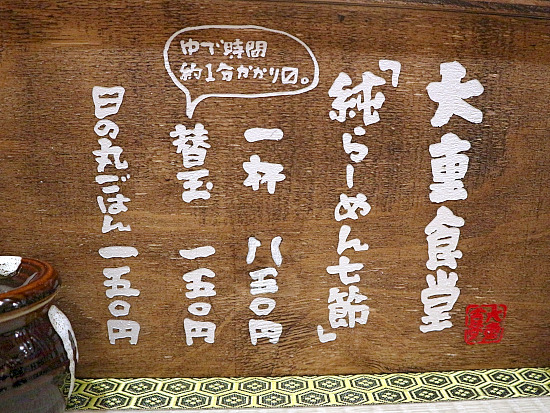 大重食堂
「純らーめん七節」
一杯 八五〇円
替玉 一五〇円
ゆで時間
約1分かかり〼。
日の丸ごはん 一五〇円